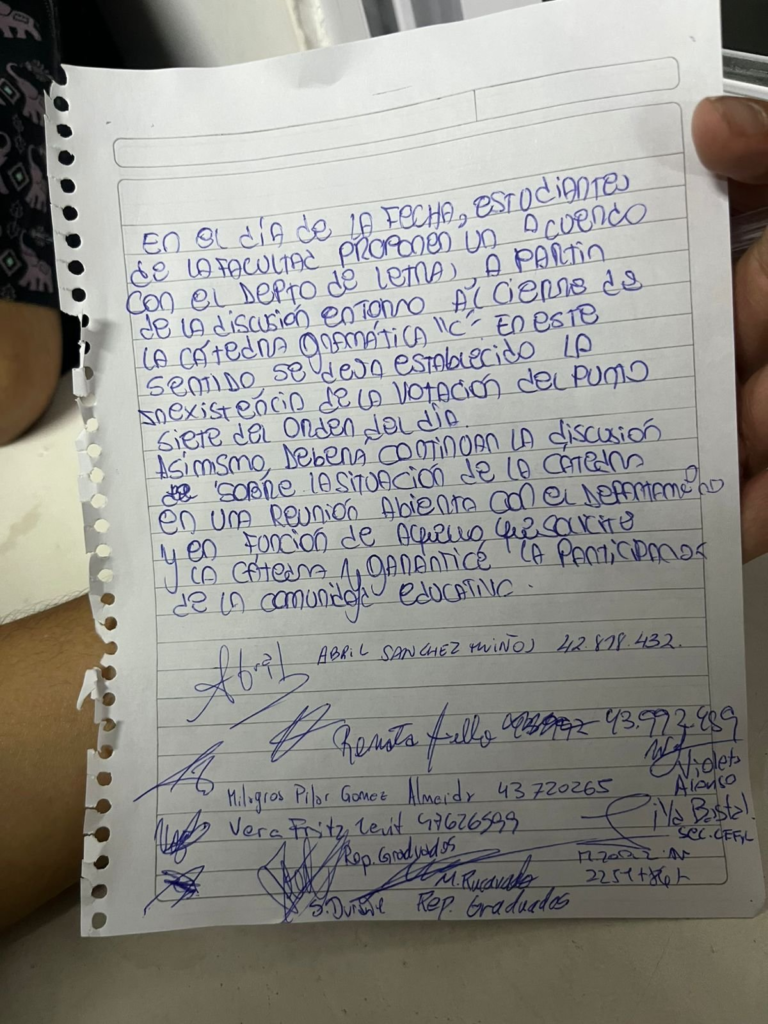 En el día de la fecha, estudiantes
de la Facultad proponen un acuerdo
con el Depto de Letras, a partir
de la discusión entorno al cierre de
la cátedra Gramática "C". En este
sentido, se deja establecido la
inexistencia de la votación del punto
siete del orden del día.
Asimismo, deberá continuar la discusión
sobre la situación de la cátedra
en una reunión abierta con el Departamento
y en función de aquello que solicite
y la cátedra y garantice la participación
de la comunidad educativa.
Abril ABRIL SANCHEZ MUIÑOS 42.878.432.
Renata 43.992.489
Violeta
Alonso
Milagros Pilar Gomez Almeida 43720265
Vera Fritz Levit 47626599
Sec. CEFyL
Rep. Graduados
M.
Rep. Graduados